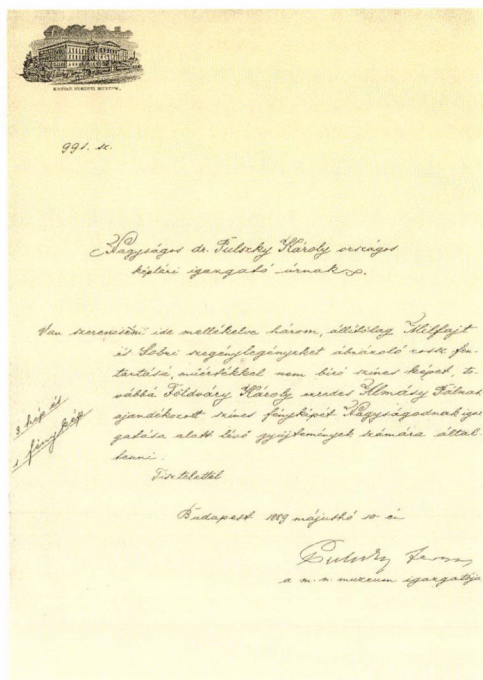 MAGYAR NEMZETI MUZEUM.
991. sz.
Nagyságos dr. Pulszky Károly országos
képtári igazgató úrnak.
Van szerencsém ide mellékelve három, állítólag Milfajt
és Sobri szegénylegényeket ábrázoló rossz fen-
tartású, műértékkel nem biró szines képet, to-
vábbá Földváry Károly ezredes Almásy Pálnak
ajándékozott szines fényképét Nagyságodnak igaz-
gatása alatt lévő gyüjtemények számára által-
tenni.
3 kép és
1 fénykép
Tisztelettel
Budapest 1889 májushó 10-én
Pulszky Ferenc
a m. n. muzeum igazgatója